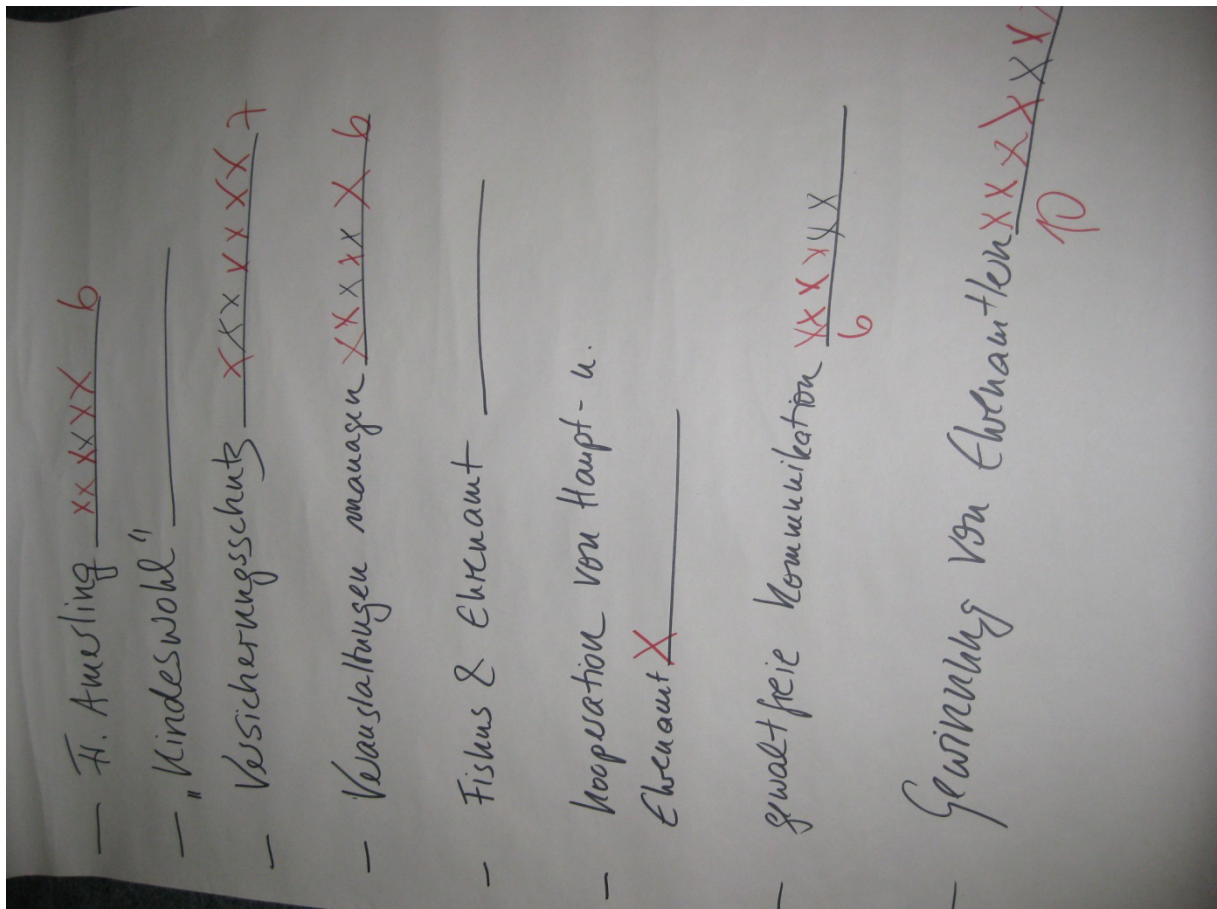 - Fr. Amerling xxxxxx 6
- "Kindeswohl"
- Versicherungsschutz xxxxxxx 7
- Veranstaltungen managen xxxxxx 6
- Fiskus & Ehrenamt
- Kooperation von Haupt- u.
Ehrenamt X
- gewaltfreie Kommunikation xxxxxx
6
- Gewinnung von Ehrenamtlern xxxxxxx
10